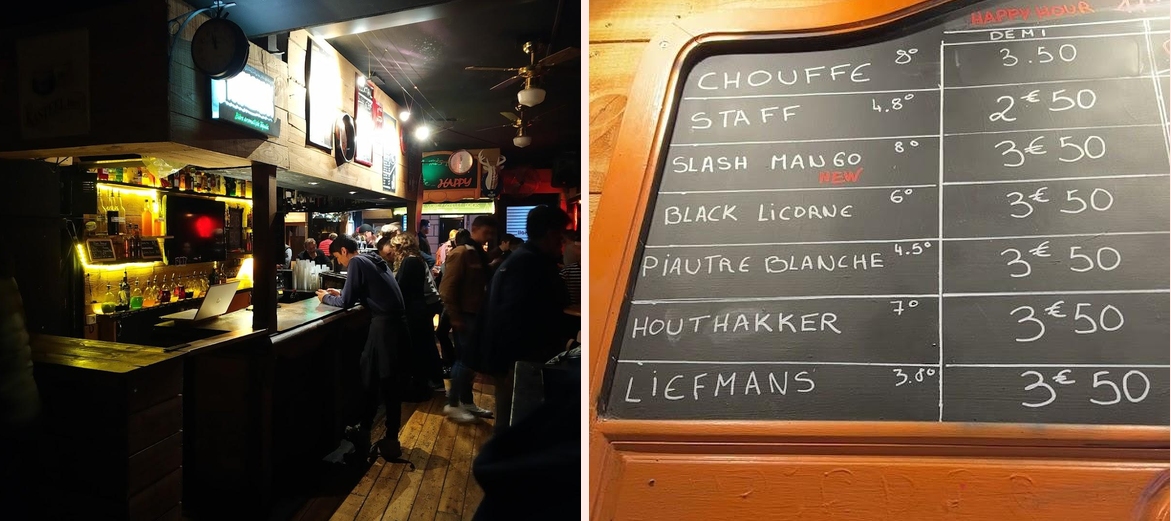 HAPPY
HAPPY HOUR
DEMI
CHOUFFE 8° 3.50
STAFF 4.8° 2€50
SLASH MANGO 8° 3€50
NEW
BLACK LICORNE 6° 3€50
PIAUTRE BLANCHE 4.5° 3€50
HOUTHAKKER 7° 3€50
LIEFMANS 3.8° 3€50